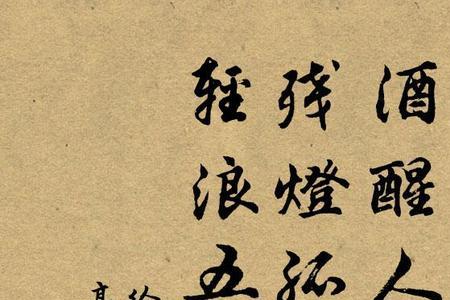 酒醒人
残燈孤
輕浪五